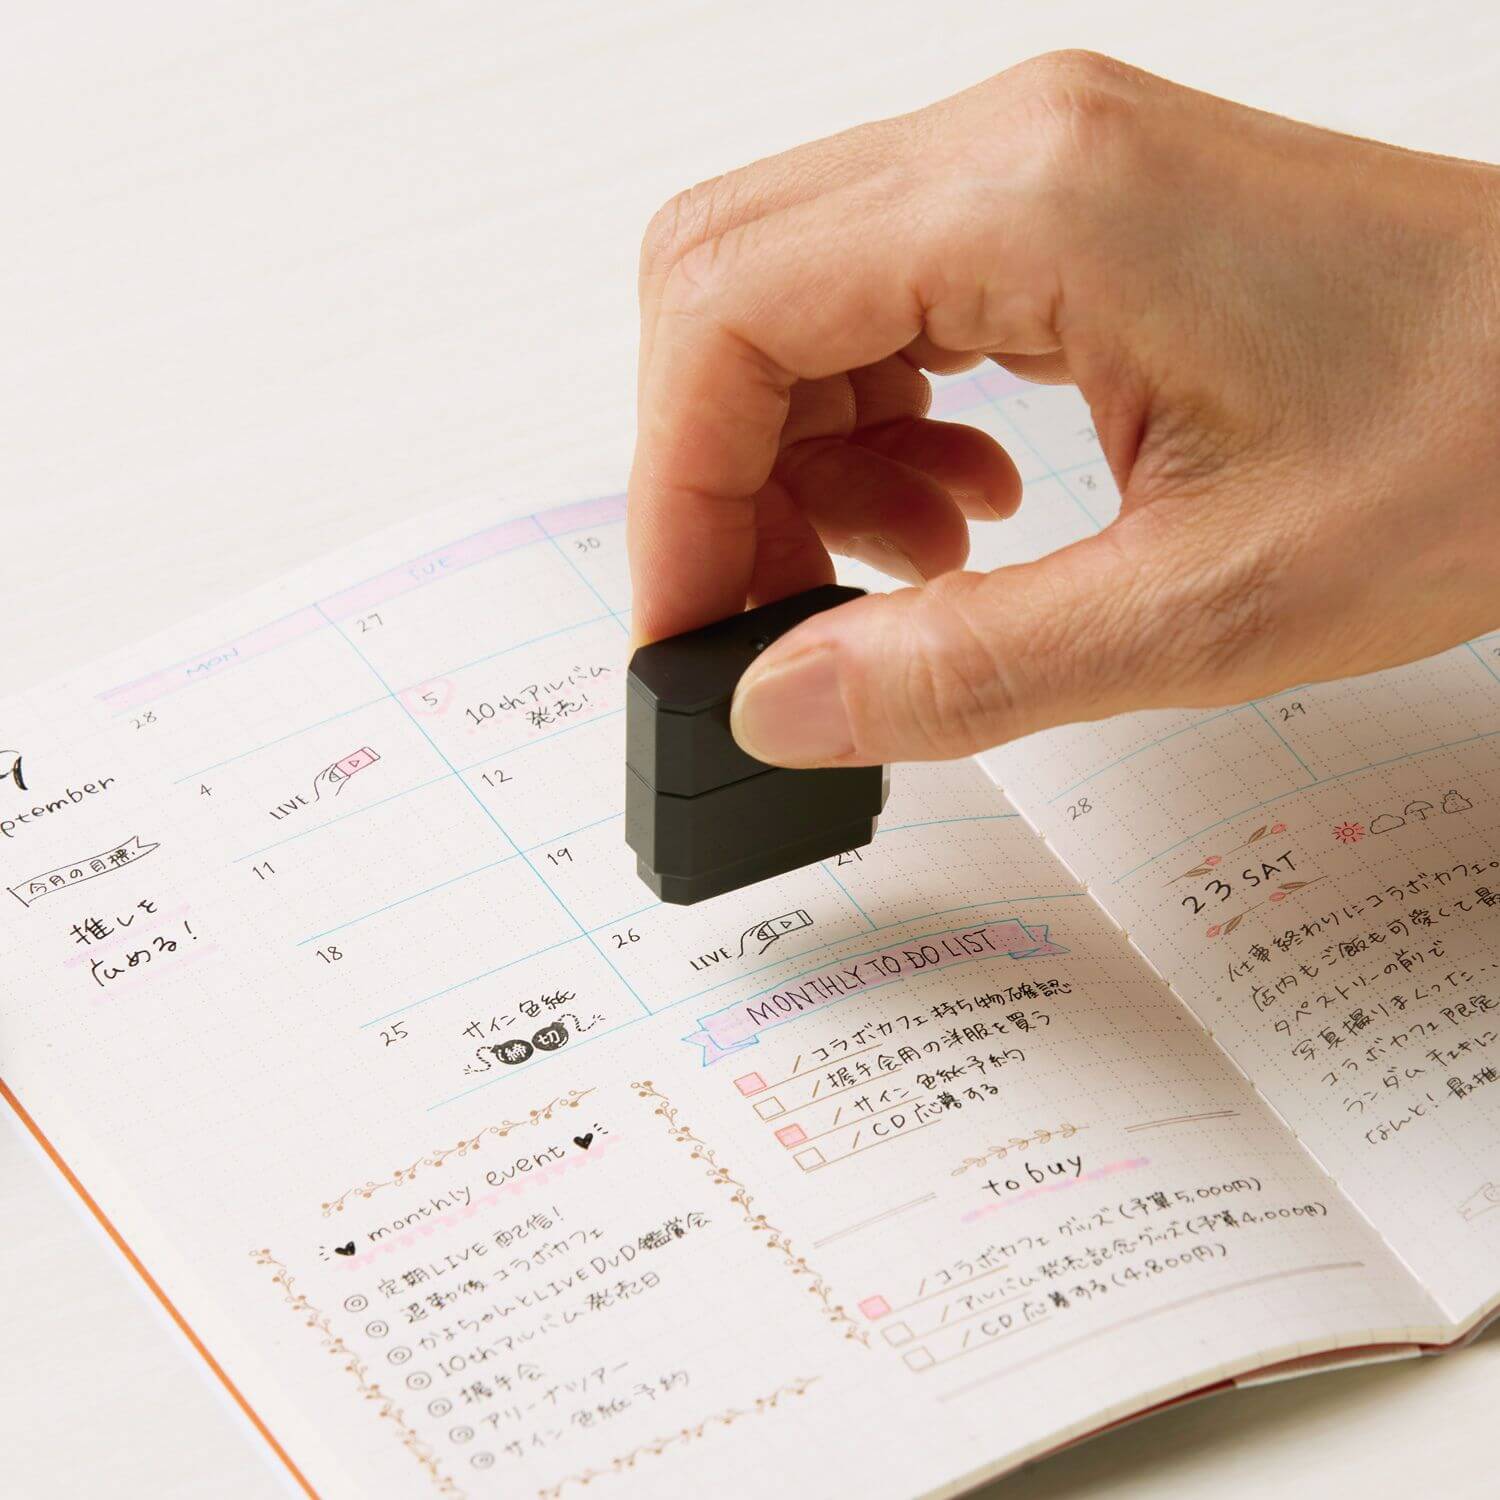 MON
TUE
28
27
30
1
8
9
September
4
5
10thアルバム
発売!
LIVE
今月の目標
推しを
広める!
11
12
18
19
25
サイン色紙
締切
26
LIVE
27
28
29
monthly event
定期LIVE配信!
退勤後コラボカフェ
かよちゃんとLIVE DVD鑑賞会
10thアルバム発売日
握手会
アリーナツアー
サイン色紙予約
MONTHLY TO DO LIST
/コラボカフェ持ち物確認
/握手会用の洋服を買う
/サイン色紙予約
/CD応募する
to buy
/コラボカフェグッズ(予算5,000円)
/アルバム発売記念グッズ(予算4,000円)
/CD応募する(4,800円)
23 SAT
仕事終わりにコラボカフェ。
店内もご飯も可愛くて最
タペストリーの前で
写真撮りまくった...
コラボカフェ限定
ランダムチェキに
なんと!最推